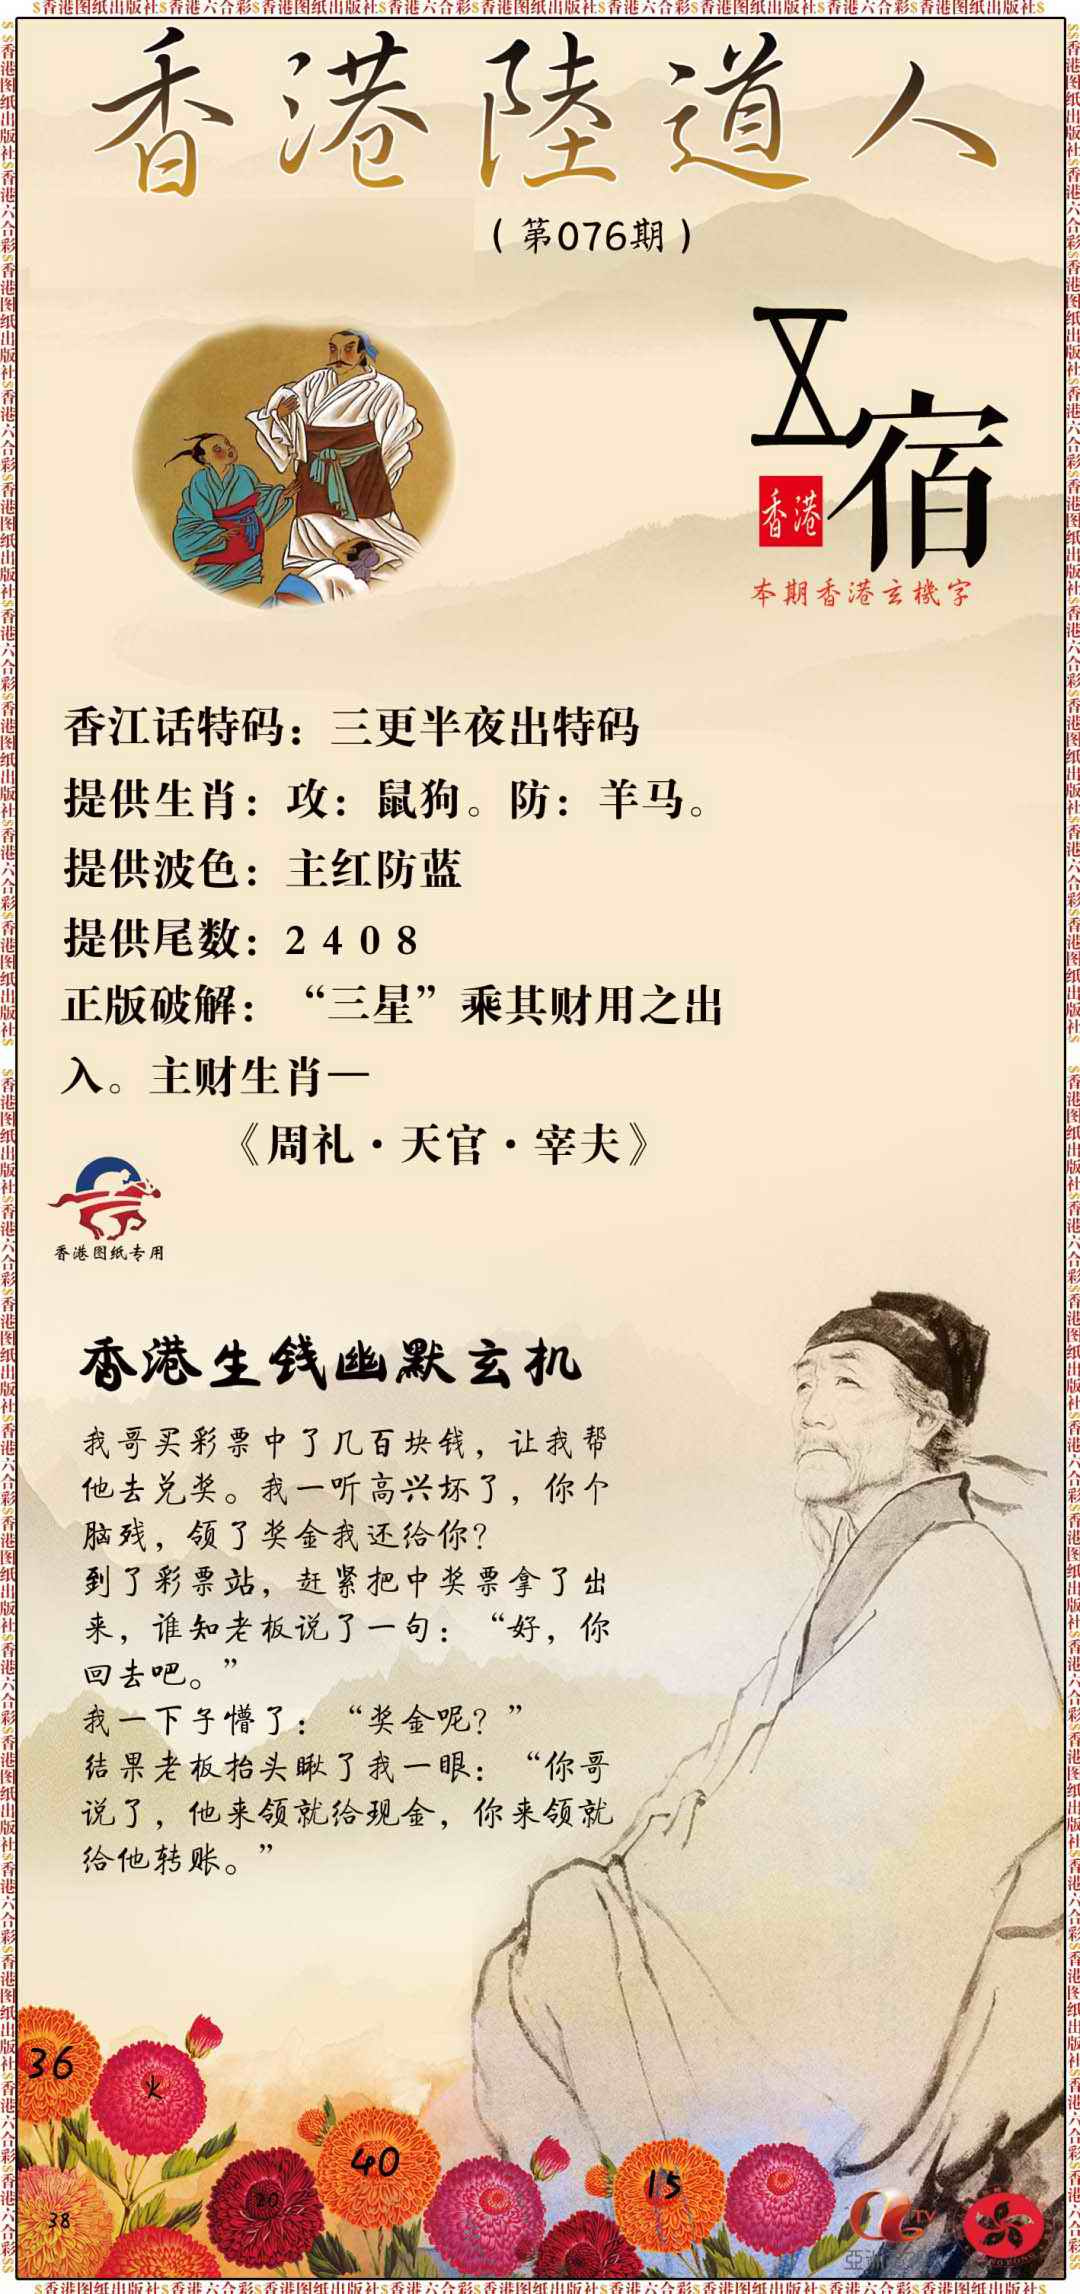 $香港图纸出版社$香港六合彩$香港图纸出版社$香港六合彩$香港图纸出版社$香港六合彩$香港图纸出版社$
香港陸道人
（第076期）
宿
香港
本期香港玄機字
香江话特码：三更半夜出特码
提供生肖：攻：鼠狗。防：羊马。
提供波色：主红防蓝
提供尾数：2 4 0 8
正版破解：“三星”乘其财用之出
入。主财生肖—
《周礼·天官·宰夫》
香港图纸专用
香港生钱幽默玄机
我哥买彩票中了几百块钱，让我帮
他去兑奖。我一听高兴坏了，你个
脑残，领了奖金我还给你？
到了彩票站，赶紧把中奖票拿了出
来，谁知老板说了一句：“好，你
回去吧。”
我一下子懵了：“奖金呢？”
结果老板抬头瞅了我一眼：“你哥
说了，他来领就给现金，你来领就
给他转账。”
36
火
40
15
20
38
TV
$香港图纸出版社$香港六合彩$香港图纸出版社$香港六合彩$香港图纸出版社$香港六合彩$香港图纸出版社$